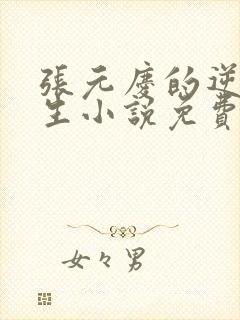 張元慶的逆
生小說免費
女々男